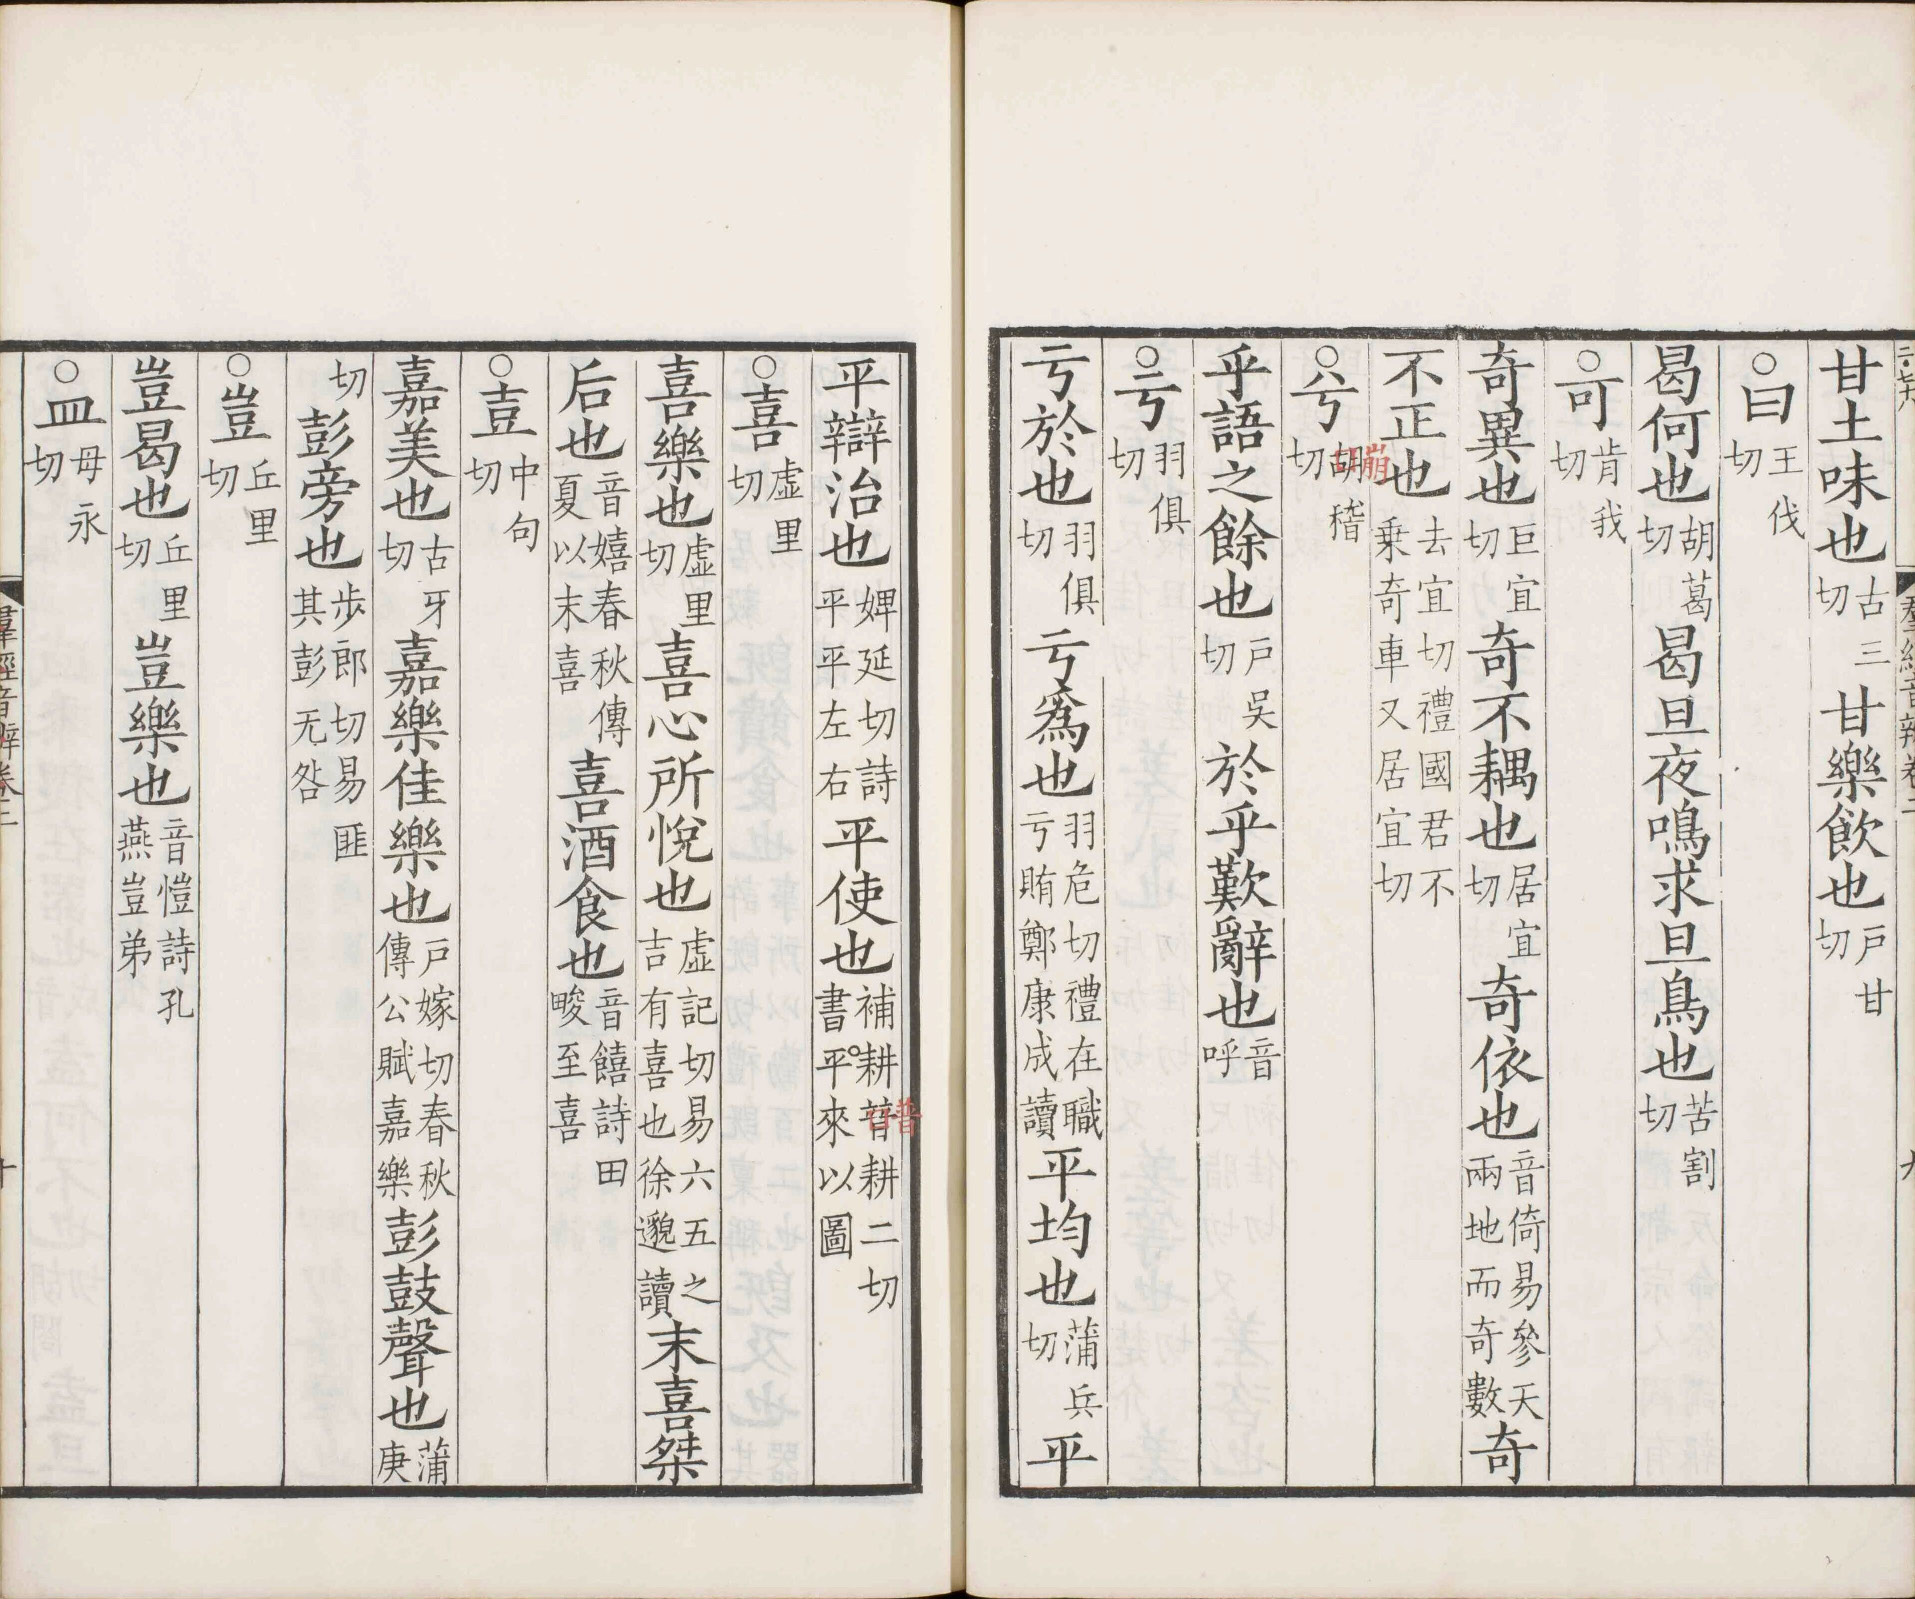 甘土味也古三切甘樂飲也戶甘切
○曰王伐切
曷何也胡葛切曷旦夜鳴求旦鳥也苦割切
○可肯我切
奇異也巨宜切奇不耦也居宜切奇依也音倚易參天兩地而奇數奇
不正也去宜切禮國君不乗奇車又居宜切
○兮胡稽切
乎語之餘也戶吳切於乎歎辭也音呼
○亏羽俱切
亏於也羽俱切亏爲也羽危切禮在職亏賄鄭康成讀平均也蒲兵切平
平辯治也婢延切詩平平左右平使也補耕普耕二切書平來以圖
○喜虛里切
喜樂也虛里切喜心所悅也虛記切易六五之吉有喜也徐邈讀末喜桀
后也音嬉春秋傳夏以末喜喜酒食也音饎詩田畯至喜
○壴中句切
嘉美也古牙切嘉樂佳樂也戶嫁切春秋傳公賦嘉樂彭鼓聲也蒲庚
切彭旁也步郎切易匪其彭无咎
○豈丘里切
豈曷也丘里切豈樂也音愷詩孔燕豈弟
○皿母永切
羣經音辨卷二
九
羣經音辨卷二
十